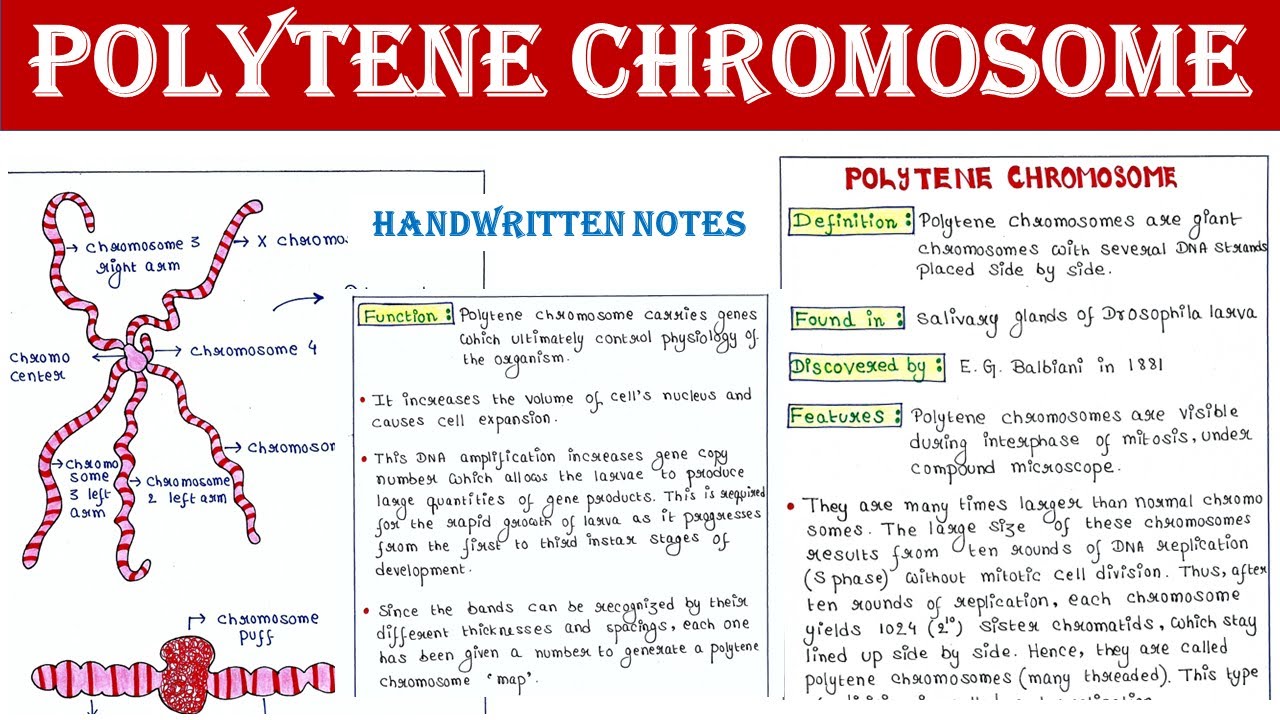 POLYTENE CHROMOSOME
HANDWRITTEN NOTES
chromosome 3
right arm
X chromo
chromo
center
chromosome 4
chromosom
chromo
some
3 left
arm
chromosome
2 left arm
chromosome
puff
Function: Polytene chromosome carries genes
which ultimately control physiology of
the organism.
• It increases the volume of cell's nucleus and
causes cell expansion.
• This DNA amplification increases gene copy
number which allows the larvae to produce
large quantities of gene products. This is required
for the rapid growth of larva as it progresses
from the first to third instar stages of
development.
• Since the bands can be recognized by their
different thicknesses and spacings, each one
has been given a number to generate a polytene
chromosome 'map'.
POLYTENE CHROMOSOME
Definition: Polytene chromosomes are giant
chromosomes with several DNA strands
placed side by side.
Found in: Salivary glands of Drosophila larva
Discovered by: E.G. Balbiani in 1881
Features: Polytene chromosomes are visible
during interphase of mitosis, under
compound microscope.
• They are many times larger than normal chromo
somes. The large size of these chromosomes
results from ten rounds of DNA replication
(S phase) without mitotic cell division. Thus, after
ten rounds of replication, each chromosome
yields 1024 (2¹⁰) sister chromatids, which stay
lined up side by side. Hence, they are called
polytene chromosomes (many threaded). This type